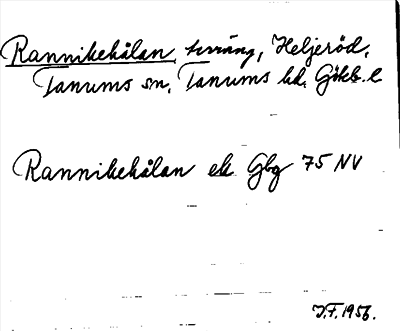 Rannikehålan, terräng, Heljeröd,
Tanums sn, Tanums hd. Götebs. l.
Rannikehålan ek Gbg 75 NV
J.F. 1956.